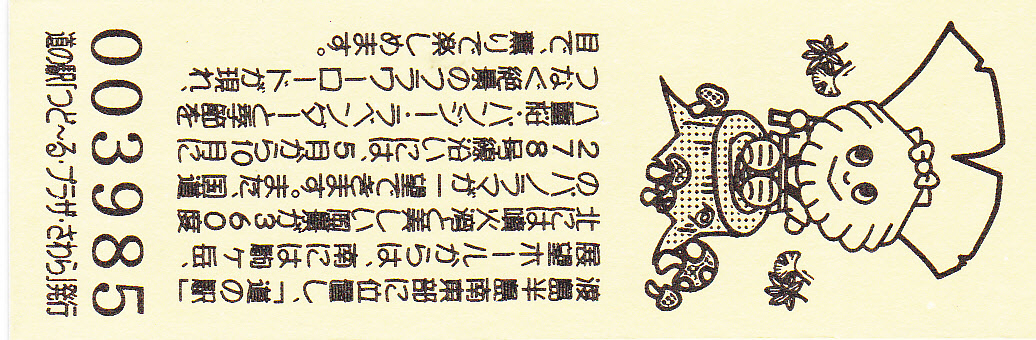 渡島半島南東部に位置し、「道の駅」
展望ホールからは、南には駒ヶ岳、
北には噴火湾と美しい風景が360度
のパノラマが一望できます。また、国道
278号線沿いには、5月から10月に
八重桜・パンジー・ラベンダーと季節を
つなぐ絶景のフラワーロードが現れ、
目で、薫りで楽しめます。
003985
道の駅「つど〜る・プラザ・さわら」発行